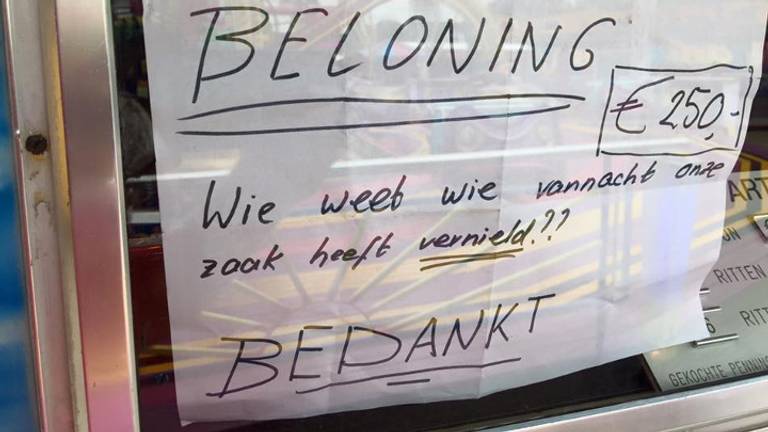 BELONING
€ 250,-
Wie weet wie vannacht onze
zaak heeft vernield.??
BEDANKT
ART
RITTEN
6 RITT
GEKOCHTE PENNING